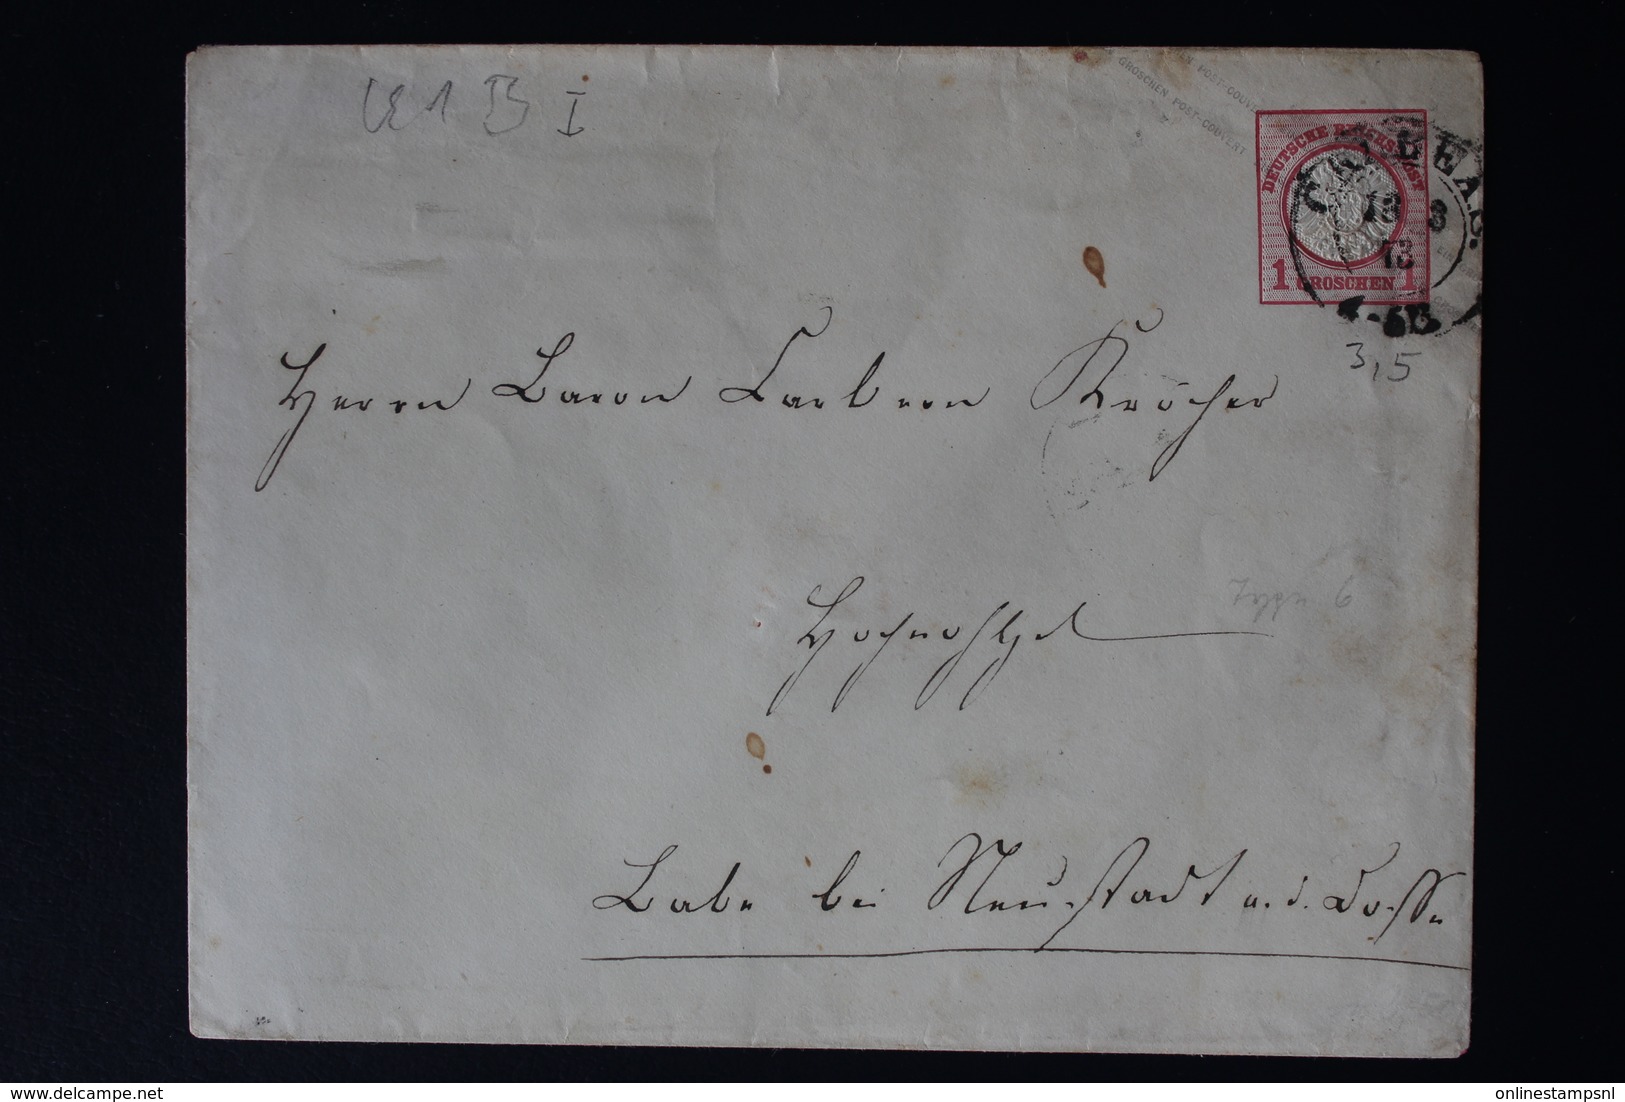 I
GROSCHEN POST-COUVERT
DEUTSCHE REICHS-POST
1 GROSCHEN 1
3,5
Herrn Baron Carl von Kröcher
Hochwohlgel
Type 6
Babe bei Neustadt a. d. Dosse
delcampe.net
onlinestampsnl